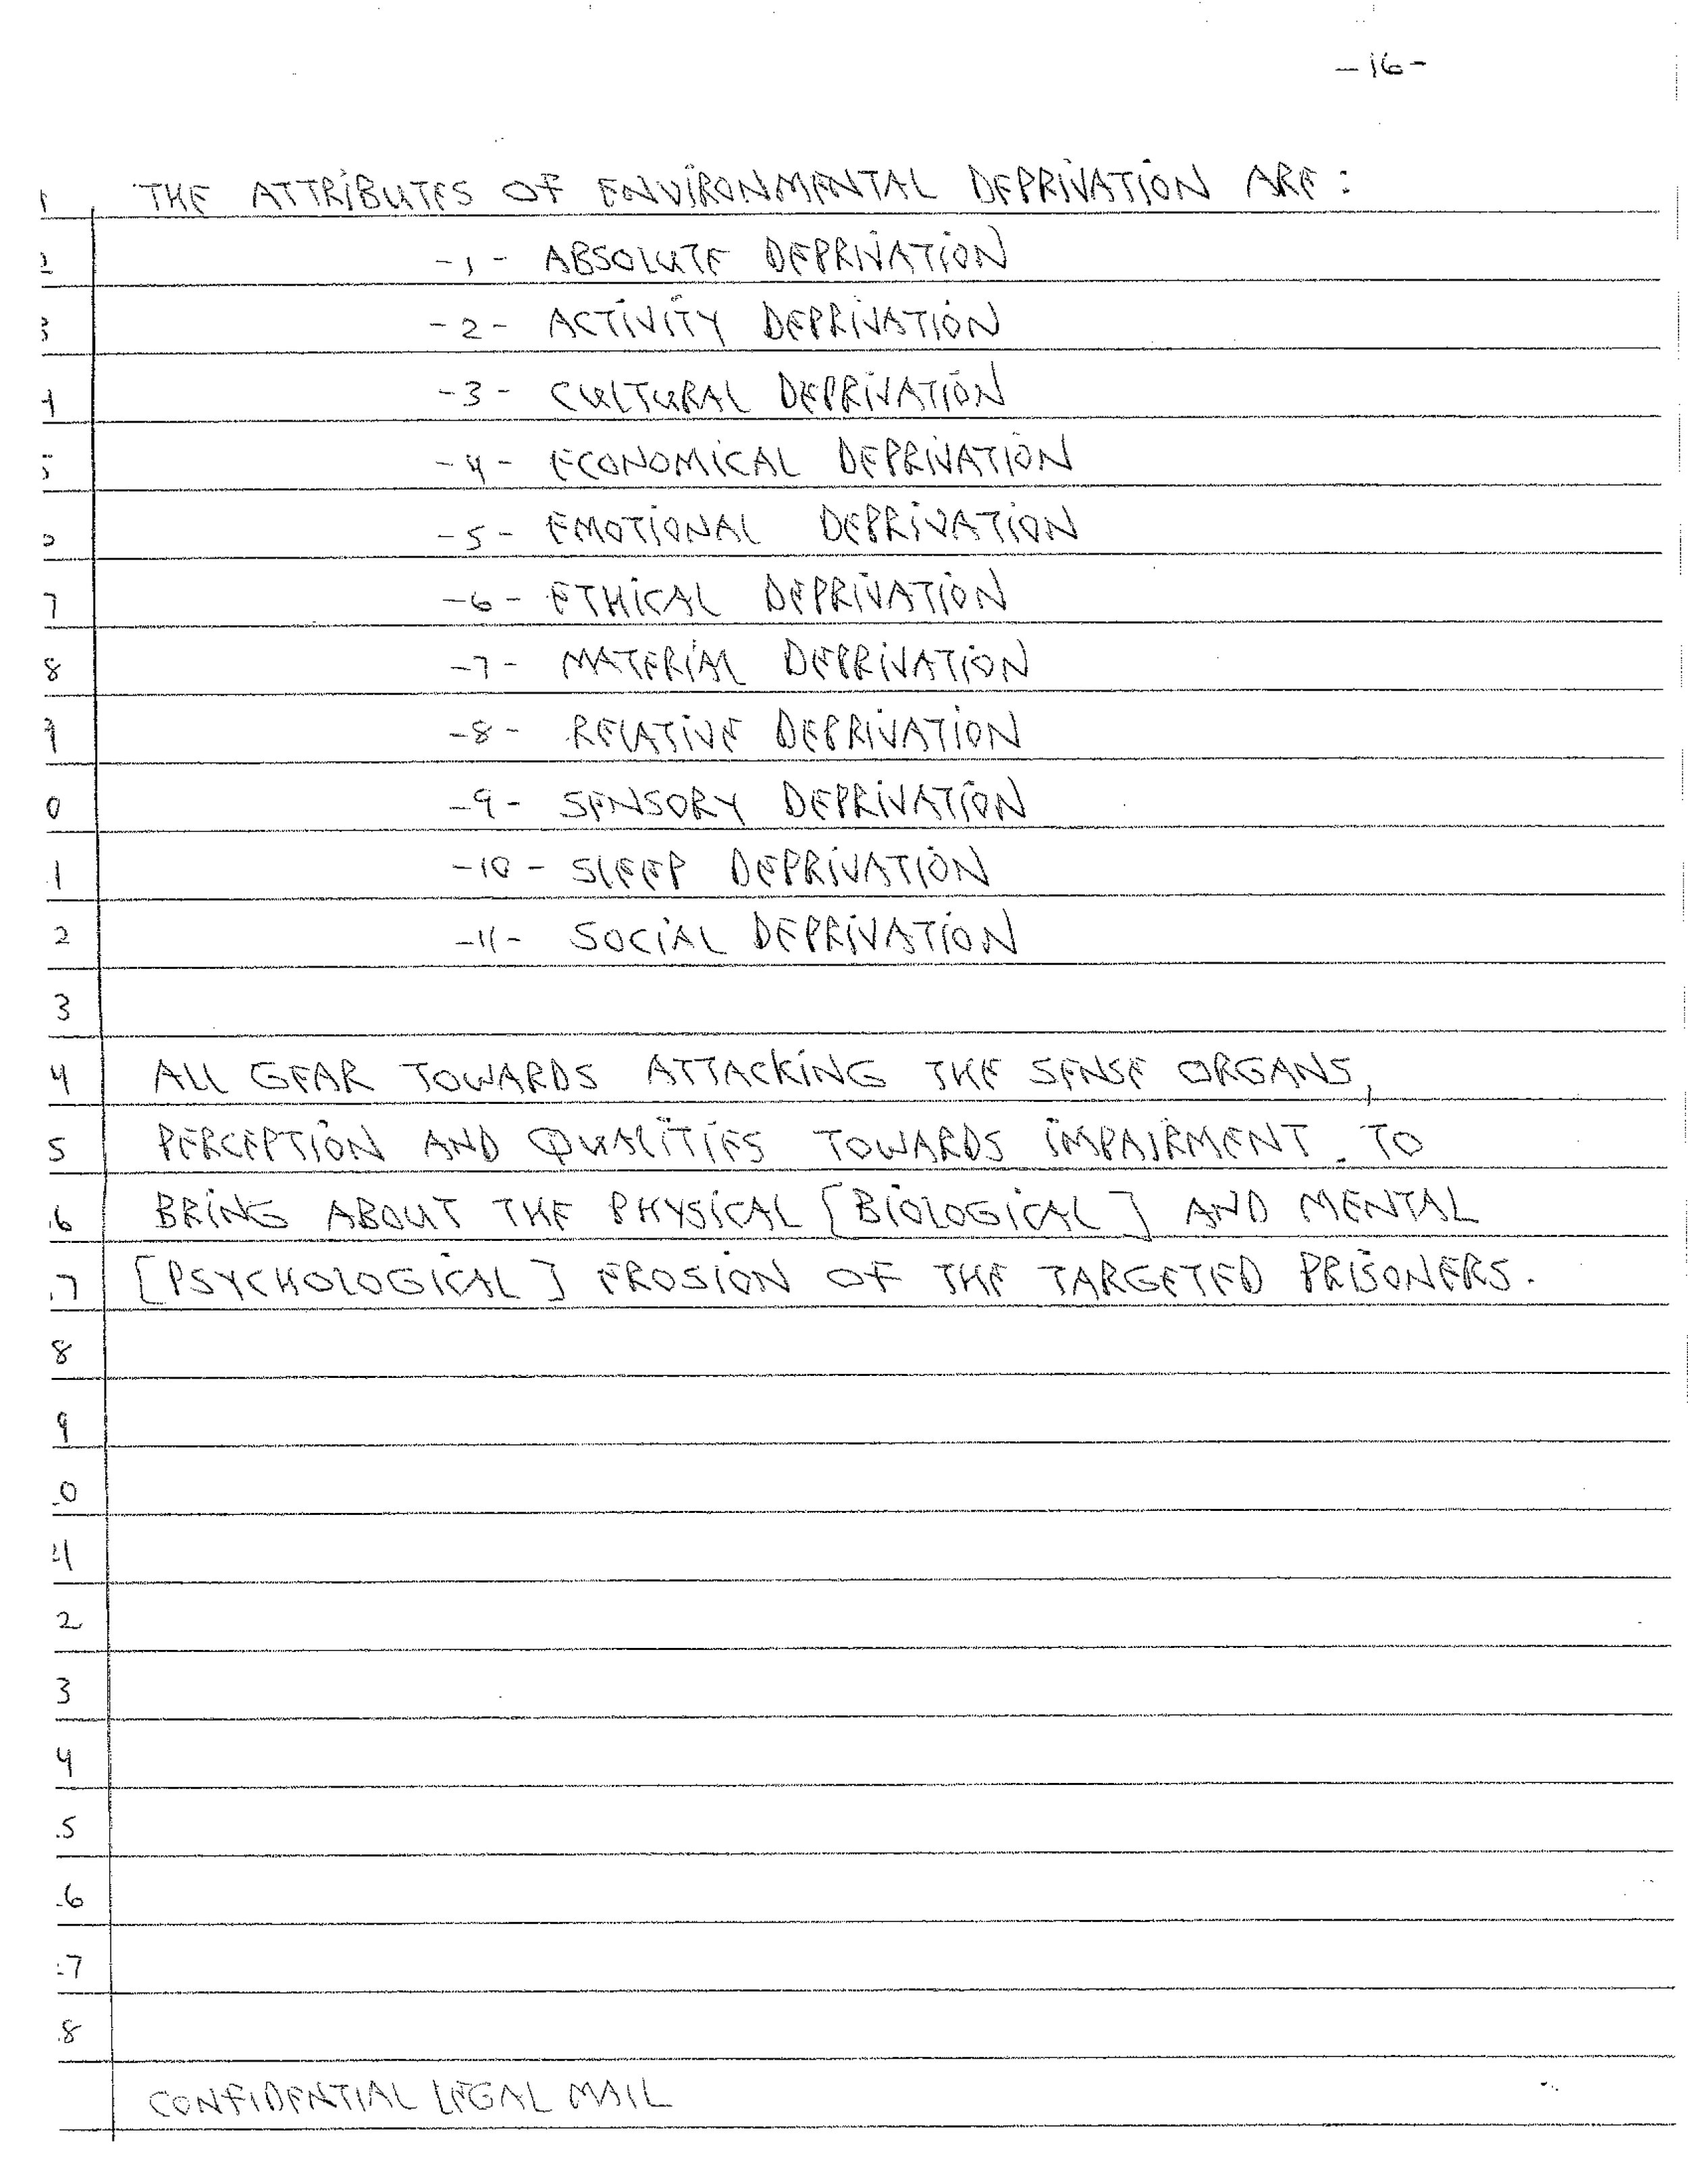 -16-
1 THE ATTRIBUTES OF ENVIRONMENTAL DEPRIVATION ARE:
2 -1- ABSOLUTE DEPRIVATION
3 -2- ACTIVITY DEPRIVATION
4 -3- CULTURAL DEPRIVATION
5 -4- ECONOMICAL DEPRIVATION
-5- EMOTIONAL DEPRIVATION
7 -6- ETHICAL DEPRIVATION
8 -7- MATERIAL DEPRIVATION
9 -8- RELATIVE DEPRIVATION
0 -9- SENSORY DEPRIVATION
1 -10- SLEEP DEPRIVATION
2 -11- SOCIAL DEPRIVATION
3
4 ALL GEAR TOWARDS ATTACKING THE SENSE ORGANS,
5 PERCEPTION AND QUALITIES TOWARDS IMPAIRMENT. TO
6 BRING ABOUT THE PHYSICAL [BIOLOGICAL] AND MENTAL
7 [PSYCHOLOGICAL] EROSION OF THE TARGETED PRISONERS.
8
9
0
1
2
3
4
5
6
7
8
CONFIDENTIAL LEGAL MAIL